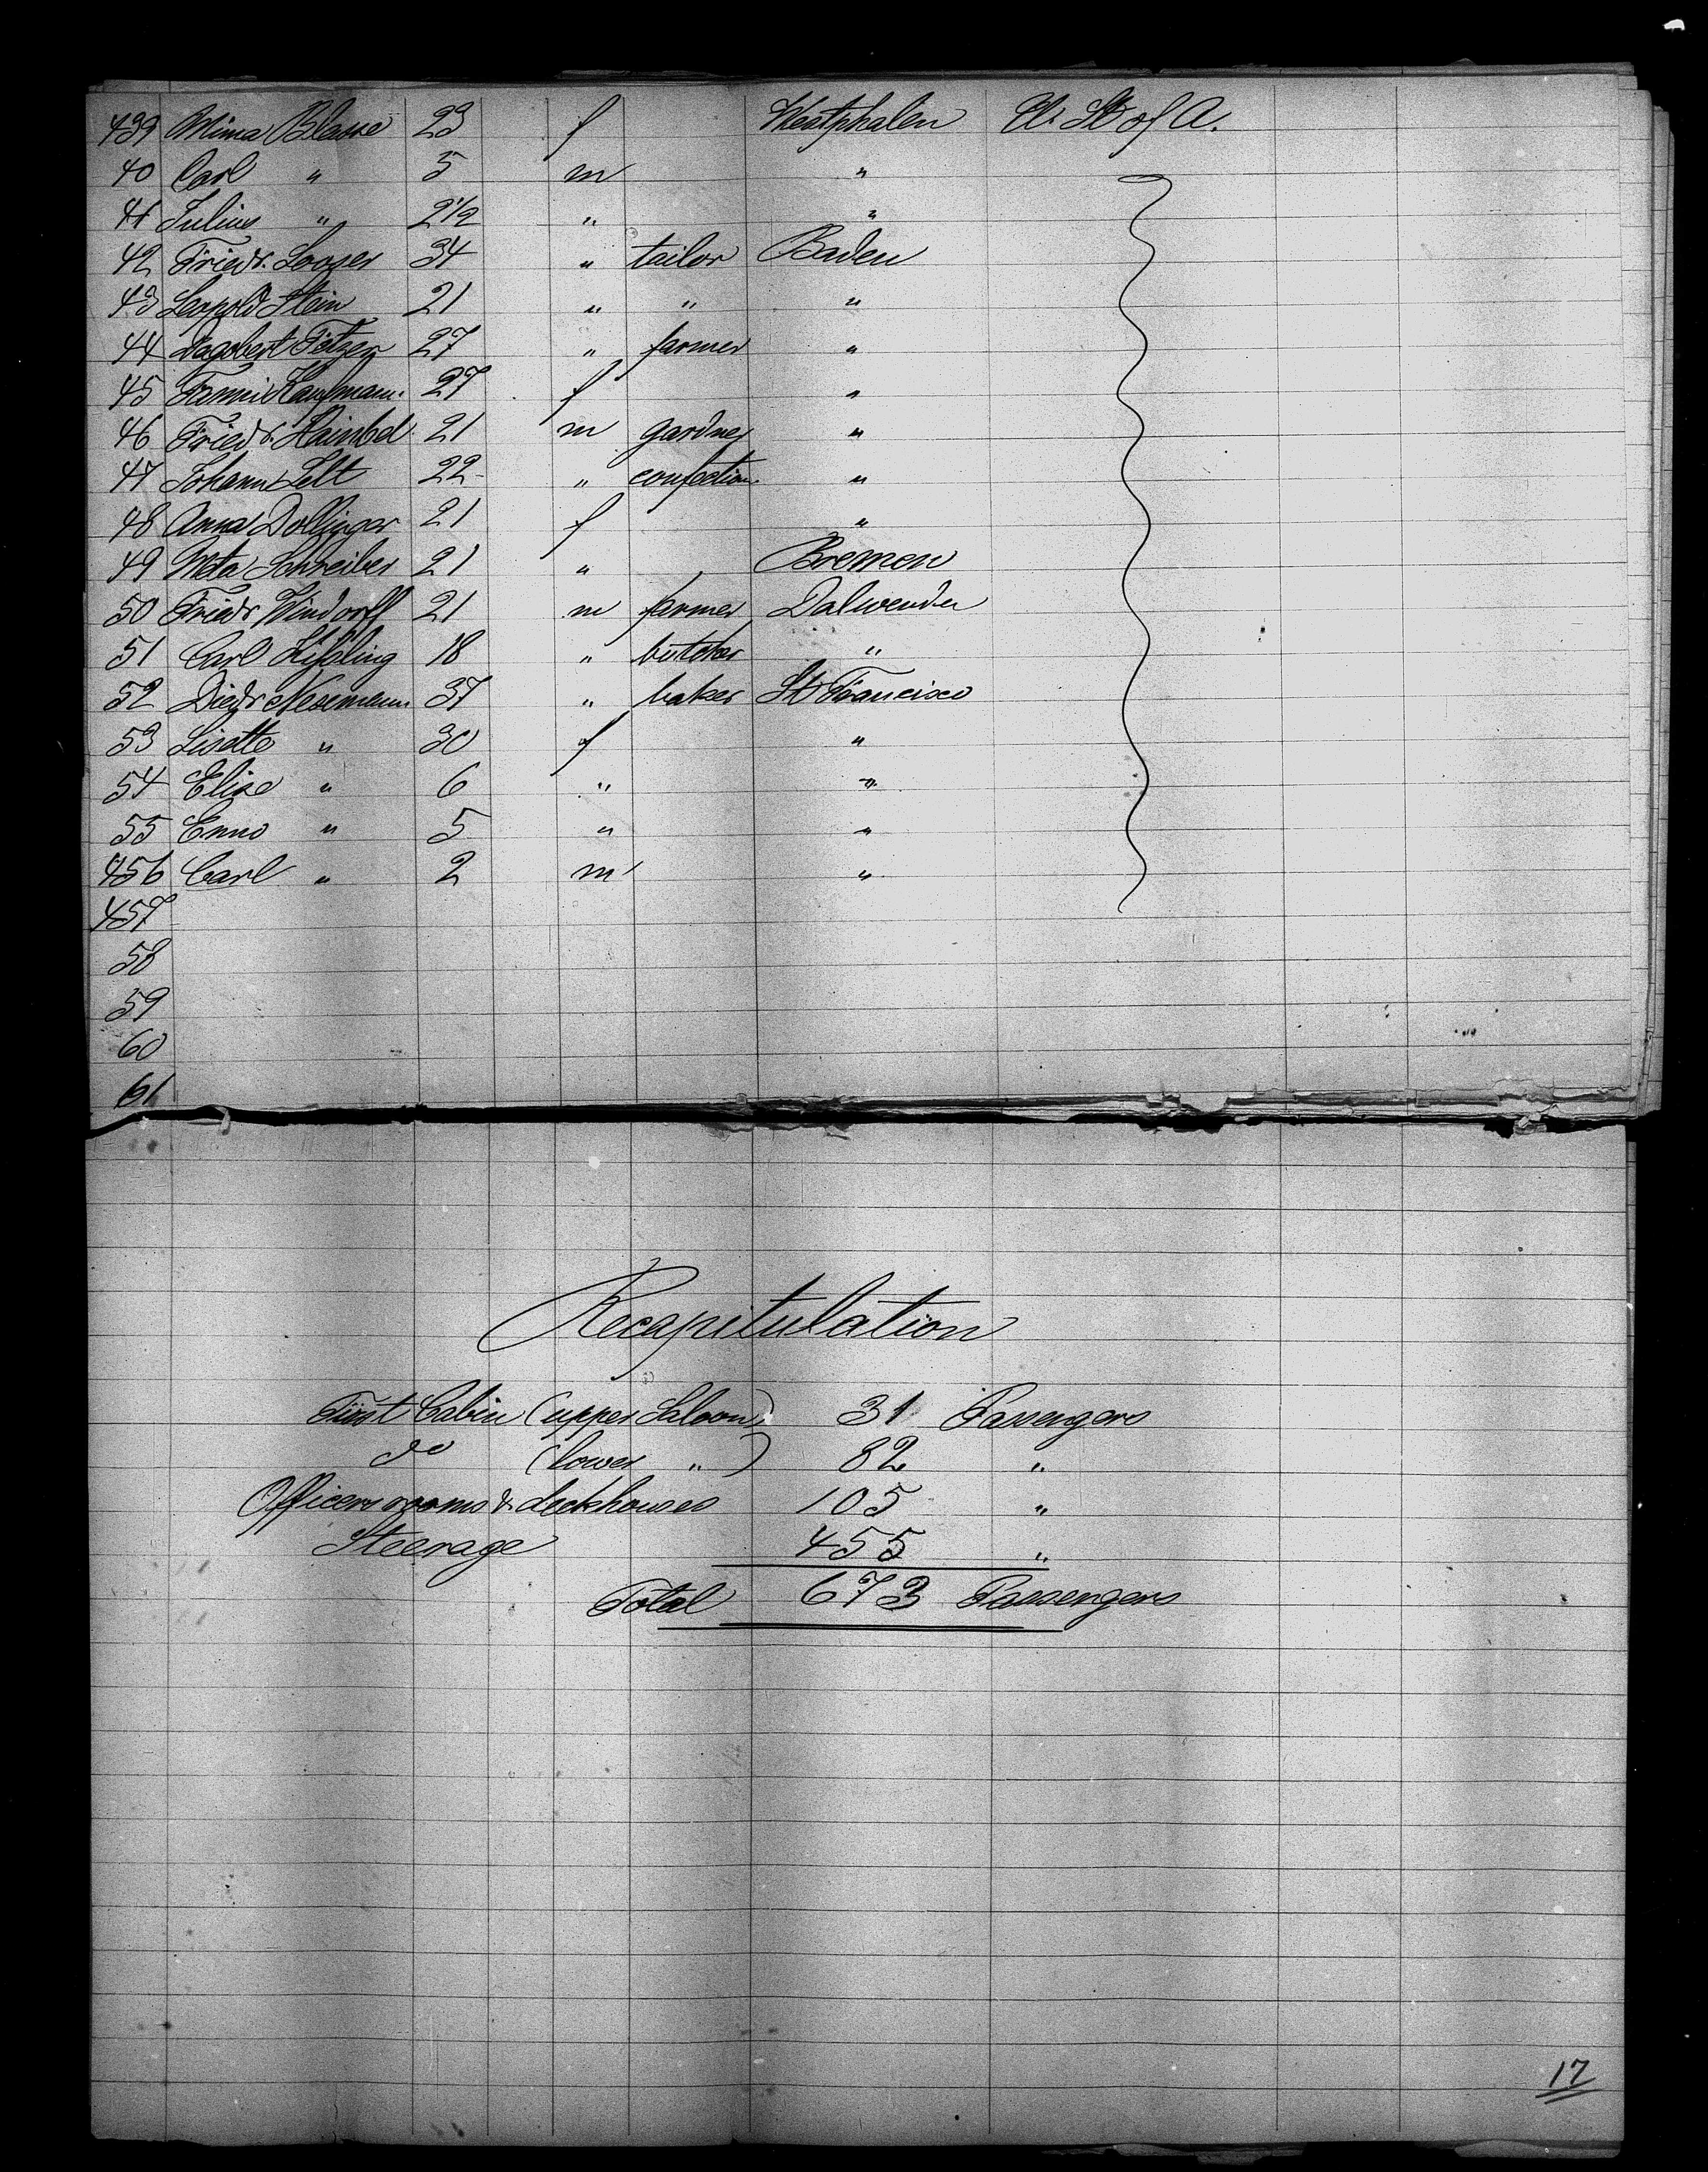 439 Mima Blasse 23 f Westphalen U. St of A.
40 Carl " 5 m "
41 Julius " 2 1/2 " "
42 Friedr. Looser 34 " tailor Baden
43 Leopold Stein 21 " " "
44 Dagobert Fetzer 27 " farmer "
45 Fanni Kaufmann 27 f "
46 Friedr. Hainbel 21 m gardner "
47 Johann Selt 22 " confection. "
48 Anna Dollinger 21 f "
49 Meta Schreiber 21 " Bremen
50 Friedr Windorff 21 m farmer
51 Carl Kissling 18 " butcher "
52 Diedr Nesemann 37 " baker St Francisco
53 Lisette " 30 f "
54 Elise " 6 " "
55 Enno " 5 " "
456 Carl " 2 m "
457
58
59
60
61
Recapitulation
First Cabin (upper Saloon) 31 Passengers
do (lower ") 82 "
Officers rooms & deckhouses 105 "
Steerage 455 "
Total 673 Passengers
17